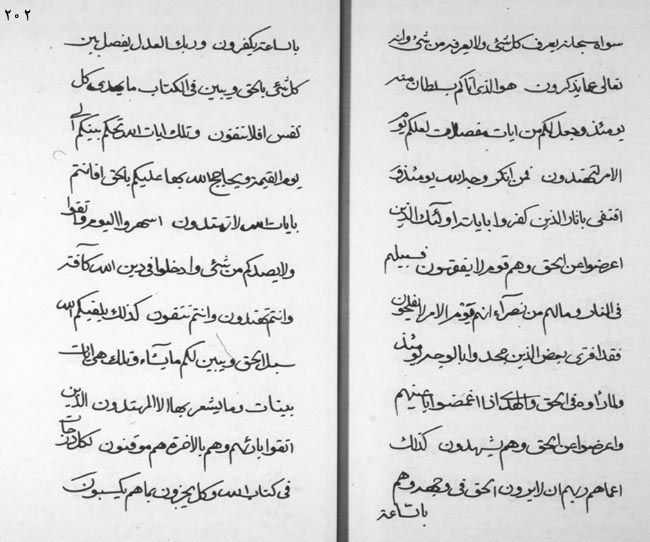 ٢٠٢
سواه سبحانه يعرف كل شئ ولا يعرفه من شئ وانه
تعالى عما يذكرون هو الذى اتاكم بسلطان منه
يومئذ وجعل لكم من ايات مفصلات لعلكم
الامر لتهتدون فمن انكر وجه الله يومئذ
اقتفى باثار الذين كفروا بايات اولئك الذين
اعرضوا عن الحق وهم قوم لا يفقهون فسبيلهم
فى النار وما لهم من نصرآء انهم قوم الامر لا يفلحون
فقد افترى بعض الذين جحدوا بالوجه يومئذ
ولما راوه فى الحق والهدى اذا اغمضوا اعينهم
واعرضوا عن الحق وهم يشهدون كذلك
اعماهم ربهم ان لا يرون الحق فى وجهه وهم
بالساعة
بالساعة يكفرون وربك العدل يفصل بين
كل شئ بالحق ويبين فى الكتاب ما يهدى كل
نفس افلا تتقون وتلك ايات الله تحكم بينكم الى
يوم القيمة ويحاجج الله بها عليكم بالحق افانتم
بايات الله لا تهتدون اسمعوا اليوم واتقوا
ولا يصدكم من شئ وادخلوا فى دين الله كآفة
وانتم تهتدون وانتم تتقون كذلك يلقيكم الله
سبل الحق ويبين لكم ما يشآء وتلك هى ايات
بينات وما يشعر بها الا المهتدون الذين
اتقوا بارئهم وهم بالاخرة هم موقنون لكل درجات
فى كتاب الله وكل يجزون بما هم يكسبون